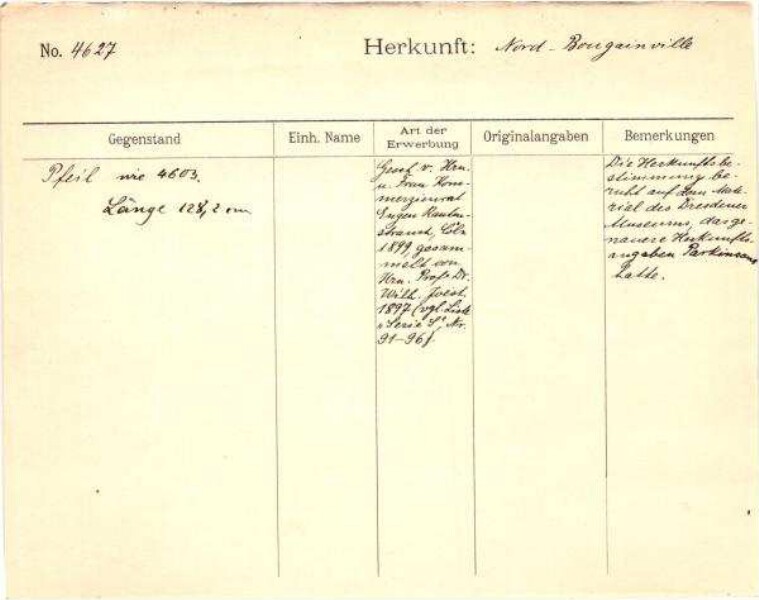 No. 4627
Herkunft: Nord-Bougainville
Gegenstand
Einh. Name
Art der
Erwerbung
Originalangaben
Bemerkungen
Pfeil wie 4603.
Länge 128,2 cm
Gesch v. Hrn.
u. Frau Kom-
merzienrat
Eugen Rauten-
strauch, Cöln
1899, gesam-
melt von
Hrn. Prof. Dr.
Wilh. Joest
1897 (vgl. Liste
"Serie S", Nr.
91-96).
Die Herkunftsbe-
stimmung be-
ruht auf dem Mate-
rial des Dresdener
Museums, das ge-
nauere Herkunfts-
angaben Parkinsons
hatte.